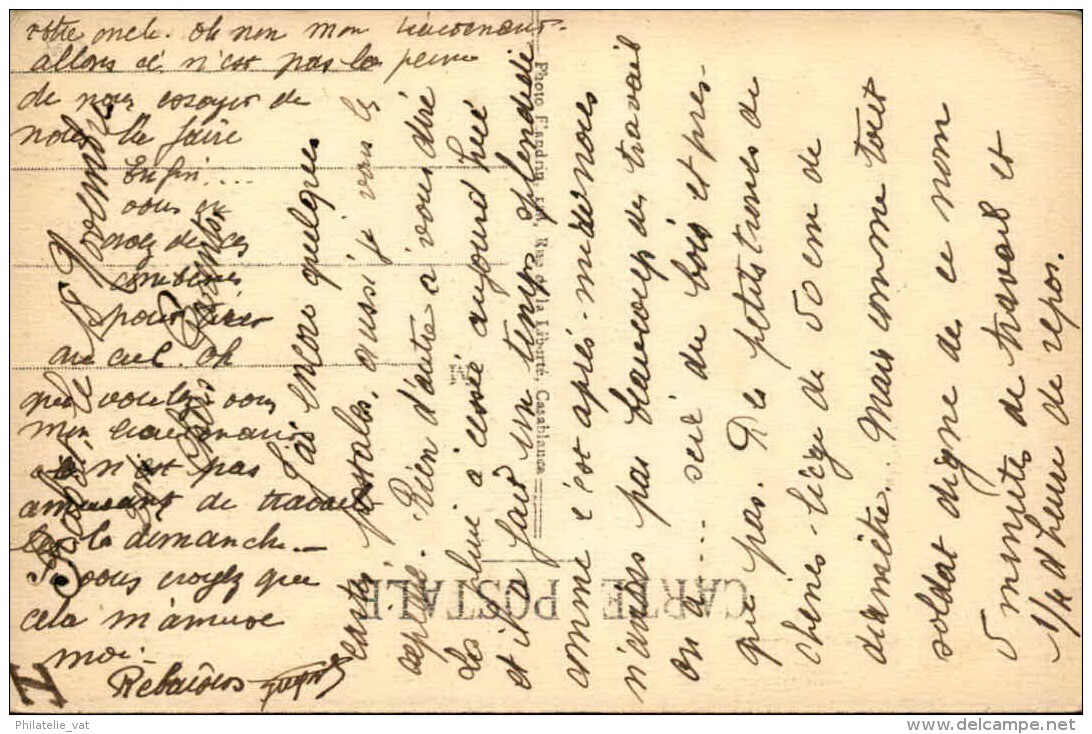 Rabat, le 18 Novembre
Mes Bons Parents
J'ai encore quelques
cartes postales, aussi je vous les
expédie. Rien d'autre à vous dire
La pluie a cessé aujourd'hui
et il a fait un temps splendide
comme c'est après-midi nous
n'avions pas beaucoup de travail
on a... scié du bois et pres-
que pas. Des petits troncs de
chênes-liège de 50 cm de
diamètre. Mais comme tout
soldat digne de ce nom
5 minutes de travail et
1/4 d'heure de repos.
votre oncle. Oh non mon lieutenant
allons ci n'est pas la peine
de nous essayer de
nous la faire
Enfin....
vous en
avez de ces
combines
pour tirer
au ciel. Oh
que voulez-vous
mon lieutenant
ce n'est pas
amusant de travailler
le dimanche...
vous croyez que
cela m'amuse
moi-
I
CARTE POSTALE
Photo Flandrin, Rue de la Liberté, Casablanca
M
Philatelie_vat
www.delcampe.net